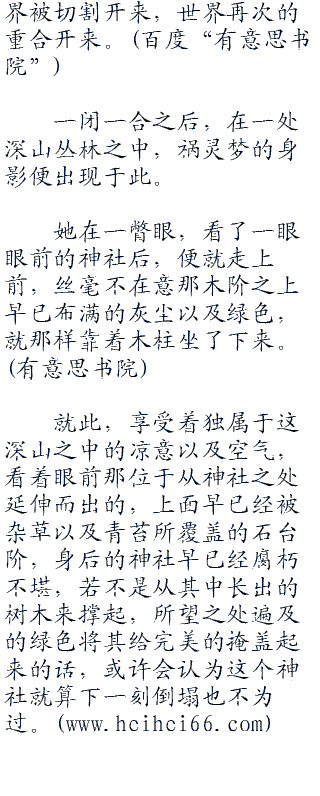 界被切割开来，世界再次的
重合开来。(百度“有意思书
院”)
一闭一合之后，在一处
深山丛林之中，祸灵梦的身
影便出现于此。
她在一瞥眼，看了一眼
眼前的神社后，便就走上
前，丝毫不在意那木阶之上
早已布满的灰尘以及绿色，
就那样靠着木柱坐了下来。
(有意思书院)
就此，享受着独属于这
深山之中的凉意以及空气，
看着眼前那位于从神社之处
延伸而出的，上面早已经被
杂草以及青苔所覆盖的石台
阶，身后的神社早已经腐朽
不堪，若不是从其中长出的
树木来撑起，所望之处遍及
的绿色将其给完美的掩盖起
来的话，或许会认为这个神
社就算下一刻倒塌也不为
过。(www.hcihci66.com)